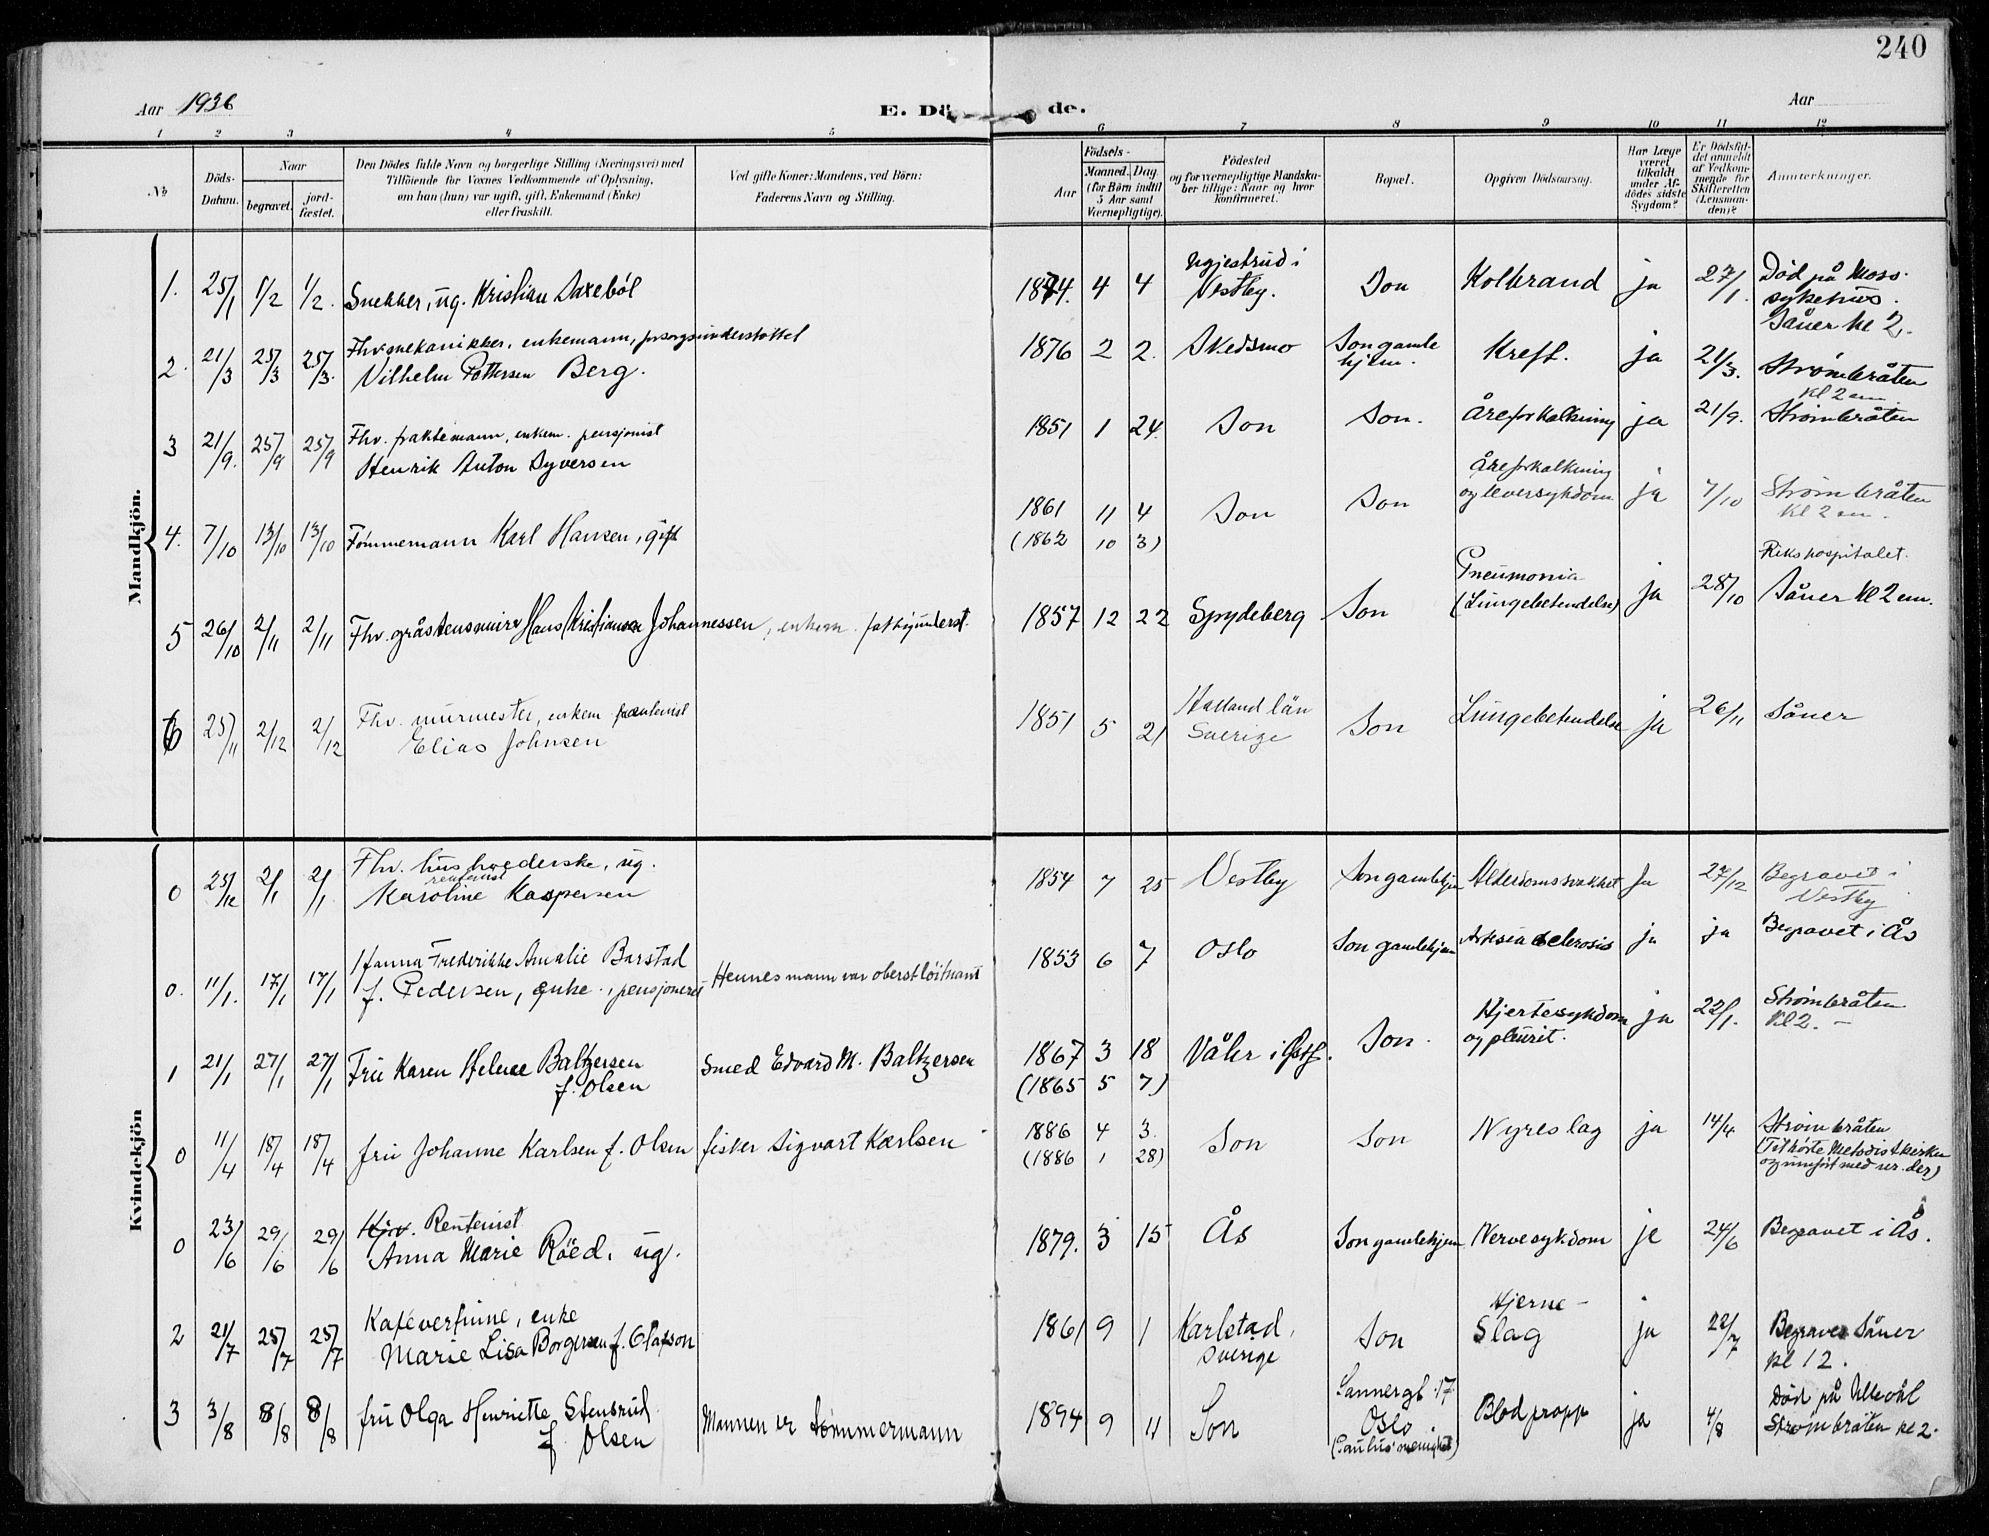 240
Aar 1936
E. Döde.
Aar
1 2 3 4 5 6 7 8 9 10 11 12
No
Döds-Datum.
Naar
begravet.
jord-fæstet.
Den Dödes fulde Navn og borgerlige Stilling (Næringsvei) med
Tilföiende for Voxnes Vedkommende af Oplysning,
om han (hun) var ugift, gift, Enkemand (Enke)
eller fraskilt.
Ved gifte Koner: Mandens, ved Börn:
Faderens Navn og Stilling.
Aar
Födsels-
Maaned. Dag
(for Börn indtil
5 Aar samt
Værnepligtige).
Födested
og for værnepligtige Mandska-
ber tillige: Naar og hvor
konfirmeret.
Bopæl.
Opgiven Dödsaarsag.
Har Læge
været
tilkaldt
under Af-
dödes sidste
Sygdom?
Er Dödsfal-
det anmeldt
af Vedkom-
mende for
Skifteretten
(Lensman-
den)?
Anmærkninger.
Mandkjön.
1. 25/1 1/2 1/2. Snekker, ug. Kristian Saxebøl 1874. 4 4 Vestby. Son Kolbrand ja 27/1. Død på Moss
sykehus.
Såner kl 2.
2. 21/3 25/3 25/3. Fhv mekanikker, enkemann, forsorgsunderstøttet
Vilhelm Pettersen Berg. 1876 2 2. Skedsmo Son gamle
hjem. Kreft. ja 21/3. Strømbråten
kl 2 em
3 21/9. 25/9 25/9 Fhv. fraktemann, enkem. pensjonist
Henrik Anton Syversen 1851 1 24. Son Son. Åreforkalkning ja 21/9. Strømbråten
4. 7/10 13/10 13/10 Tømmermann Karl Hansen, gift 1861 11 4
(1862 10 3) Son Son Åreforkalkning
og leversykdom ja 7/10 Strømbråten
kl 2 em.
5 26/10 2/11 2/11 Fhv. gråstensmurer Hans Kristiansen Johannessen, enkem. 1857 12 22 Spydeberg Son Pneumonia
(Lungebetendelse) ja 28/10 Rikshospitalet.
Såner kl 2 em.
6 25/11 2/12 2/12 Fhv. murmester, enkem
Elias Johnsen 1851 5 21 Halland län
Sverige Son Lungebetendelse ja 26/11 Såner
Kvindekjön
0 25/12 2/1 2/1 Fhv. husholderske, ug.
rentenist
Karoline Kaspersen 1854 7 25 Vestby Son gamlehjem Alderdomssvakhet ja 27/12 Begravet i
Vestby
0. 11/1. 17/1 17/1 Hanna Frederikke Amalie Barstad
f. Pedersen, enke, pensjonert Hennes mann var oberstløitnant 1853 6 7 Oslo Son gamlehjem ja ja Begravet i Ås
1 21/1 27/1 27/1 Fru Karen Helene Baltzersen
f. Olsen Smed Edvard M. Baltzersen 1867 3 18
(1865 5 7) Våler i Østf. Son. Hjertesykdom
og pleurit. ja 22/1. Strømbråten
kl 2. –
0 11/4 18/4 18/4 fru Johanne Karlsen f. Olsen fisker Sigvart Karlsen 1886 4 3.
(1886 1 28) Son Son Nyreslag ja 14/4 Strømbråten
(Tilhørte Metodistkirken
og innført med nr. der)
0 23/6 29/6 29/6 Rentenist
Anna Marie Røed, ug. 1879. 3 15 Ås Son gamlehjem Nervesykdom ja 24/6 Begravet i Ås.
2 21/7 25/7 25/7 Kafévertinne, enke
Marie Lisa Borgersen f. Olafson 1861 9 1 Karlstad,
Sverige Son Hjerne-
Slag ja 22/7 Begraves Såner
kl 12.
3 3/8 8/8 8/8 fru Olga Henriette Stensrud
f. Olsen Mannen er tømmermann 1894 9 11 Son Sannergt. 17
Oslo
(Paulus menighet) Blodpropp ja 4/8 Død på Ullevål
Strømbråten kl 2.